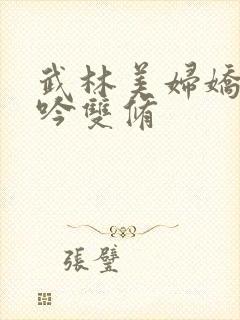 武林美婦嬌
吟雙脩
張璧